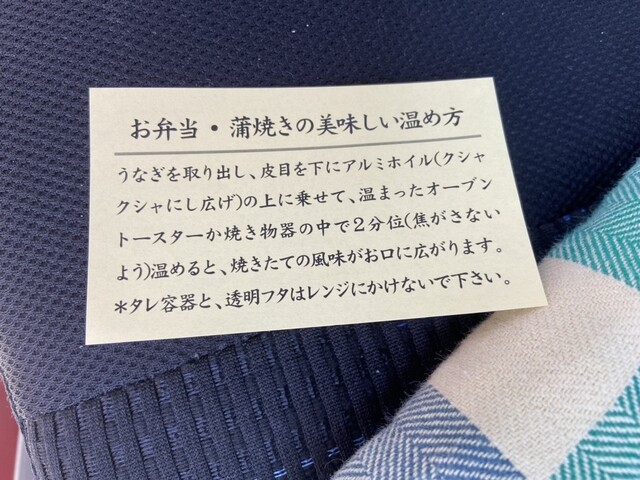 お弁当・蒲焼きの美味しい温め方
うなぎを取り出し、皮目を下にアルミホイル(クシャ
クシャにし広げ)の上に乗せて、温まったオーブン
トースターか焼き物器の中で２分位(焦がさない
よう)温めると、焼きたての風味がお口に広がります。
＊タレ容器と、透明フタはレンジにかけないで下さい。